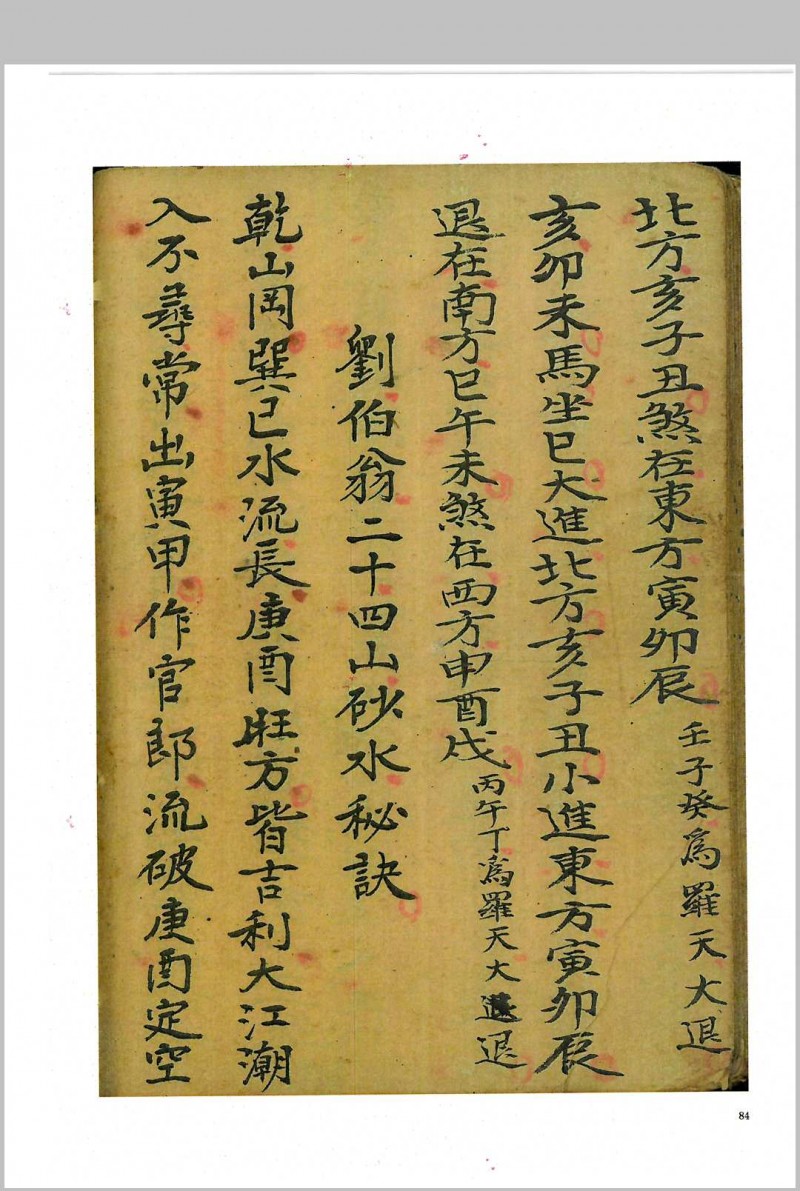 北方亥子丑煞在東方寅卯辰 壬子癸為羅天大退
亥卯未馬坐巳大進北方亥子丑小進東方寅卯辰
退在南方巳午未煞在西方申酉戌 丙午丁為羅天大退
劉伯翁二十四山砂水秘訣
乾山岡巽巳水流長庚酉旺方皆吉利大江潮
入不尋常出寅甲作官郎流破庚酉定空
84